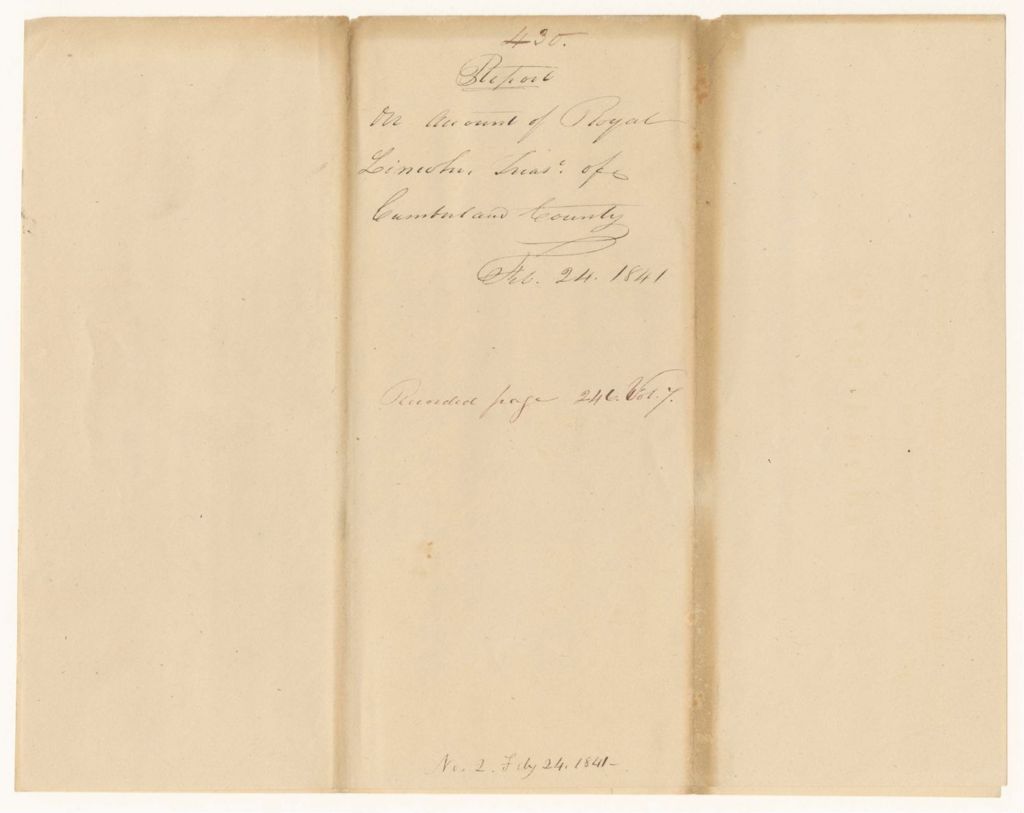 430.
Report
On Account of Royal
Lincoln, Treasr. of
Cumberland County
Feb. 24. 1841
Recorded page 246. Vol. 7.
No. 2. Feby 24. 1841-